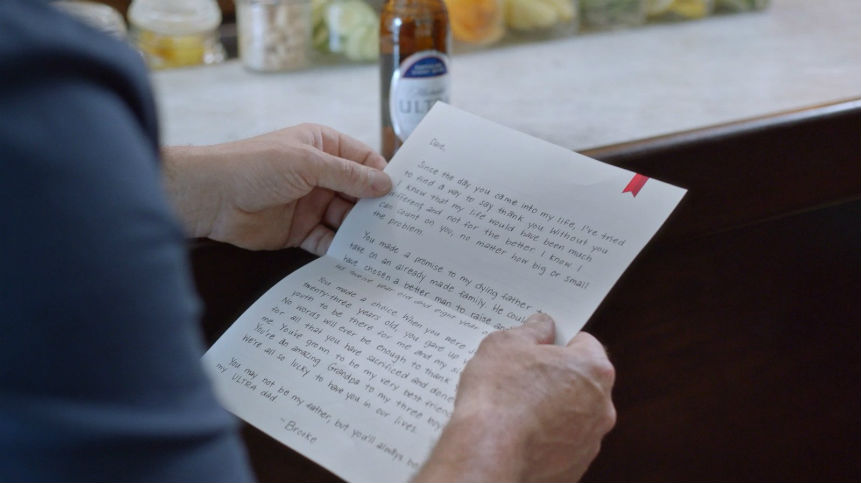 ULTRA
Dave,
Since the day you came into my life, I've tried
to find a way to say thank you. Without you
I know that my life would have been much
different and not for the better. I know I
can count on you, no matter how big or small
the problem.
You made a promise to my dying father to
take on an already made family. He could
have chosen a better man to raise an
You made a choice. When you were
twenty-three years old, you gave up
youth to be there for me and my
No words will ever be enough to thank
for all that you have sacrificed and done
me. You've grown to be my very best friend
You're an amazing Grandpa to my three boys
We're all so lucky to have you in our lives.
You may not be my father, but you'll always be
my ULTRA dad.
~Brooke